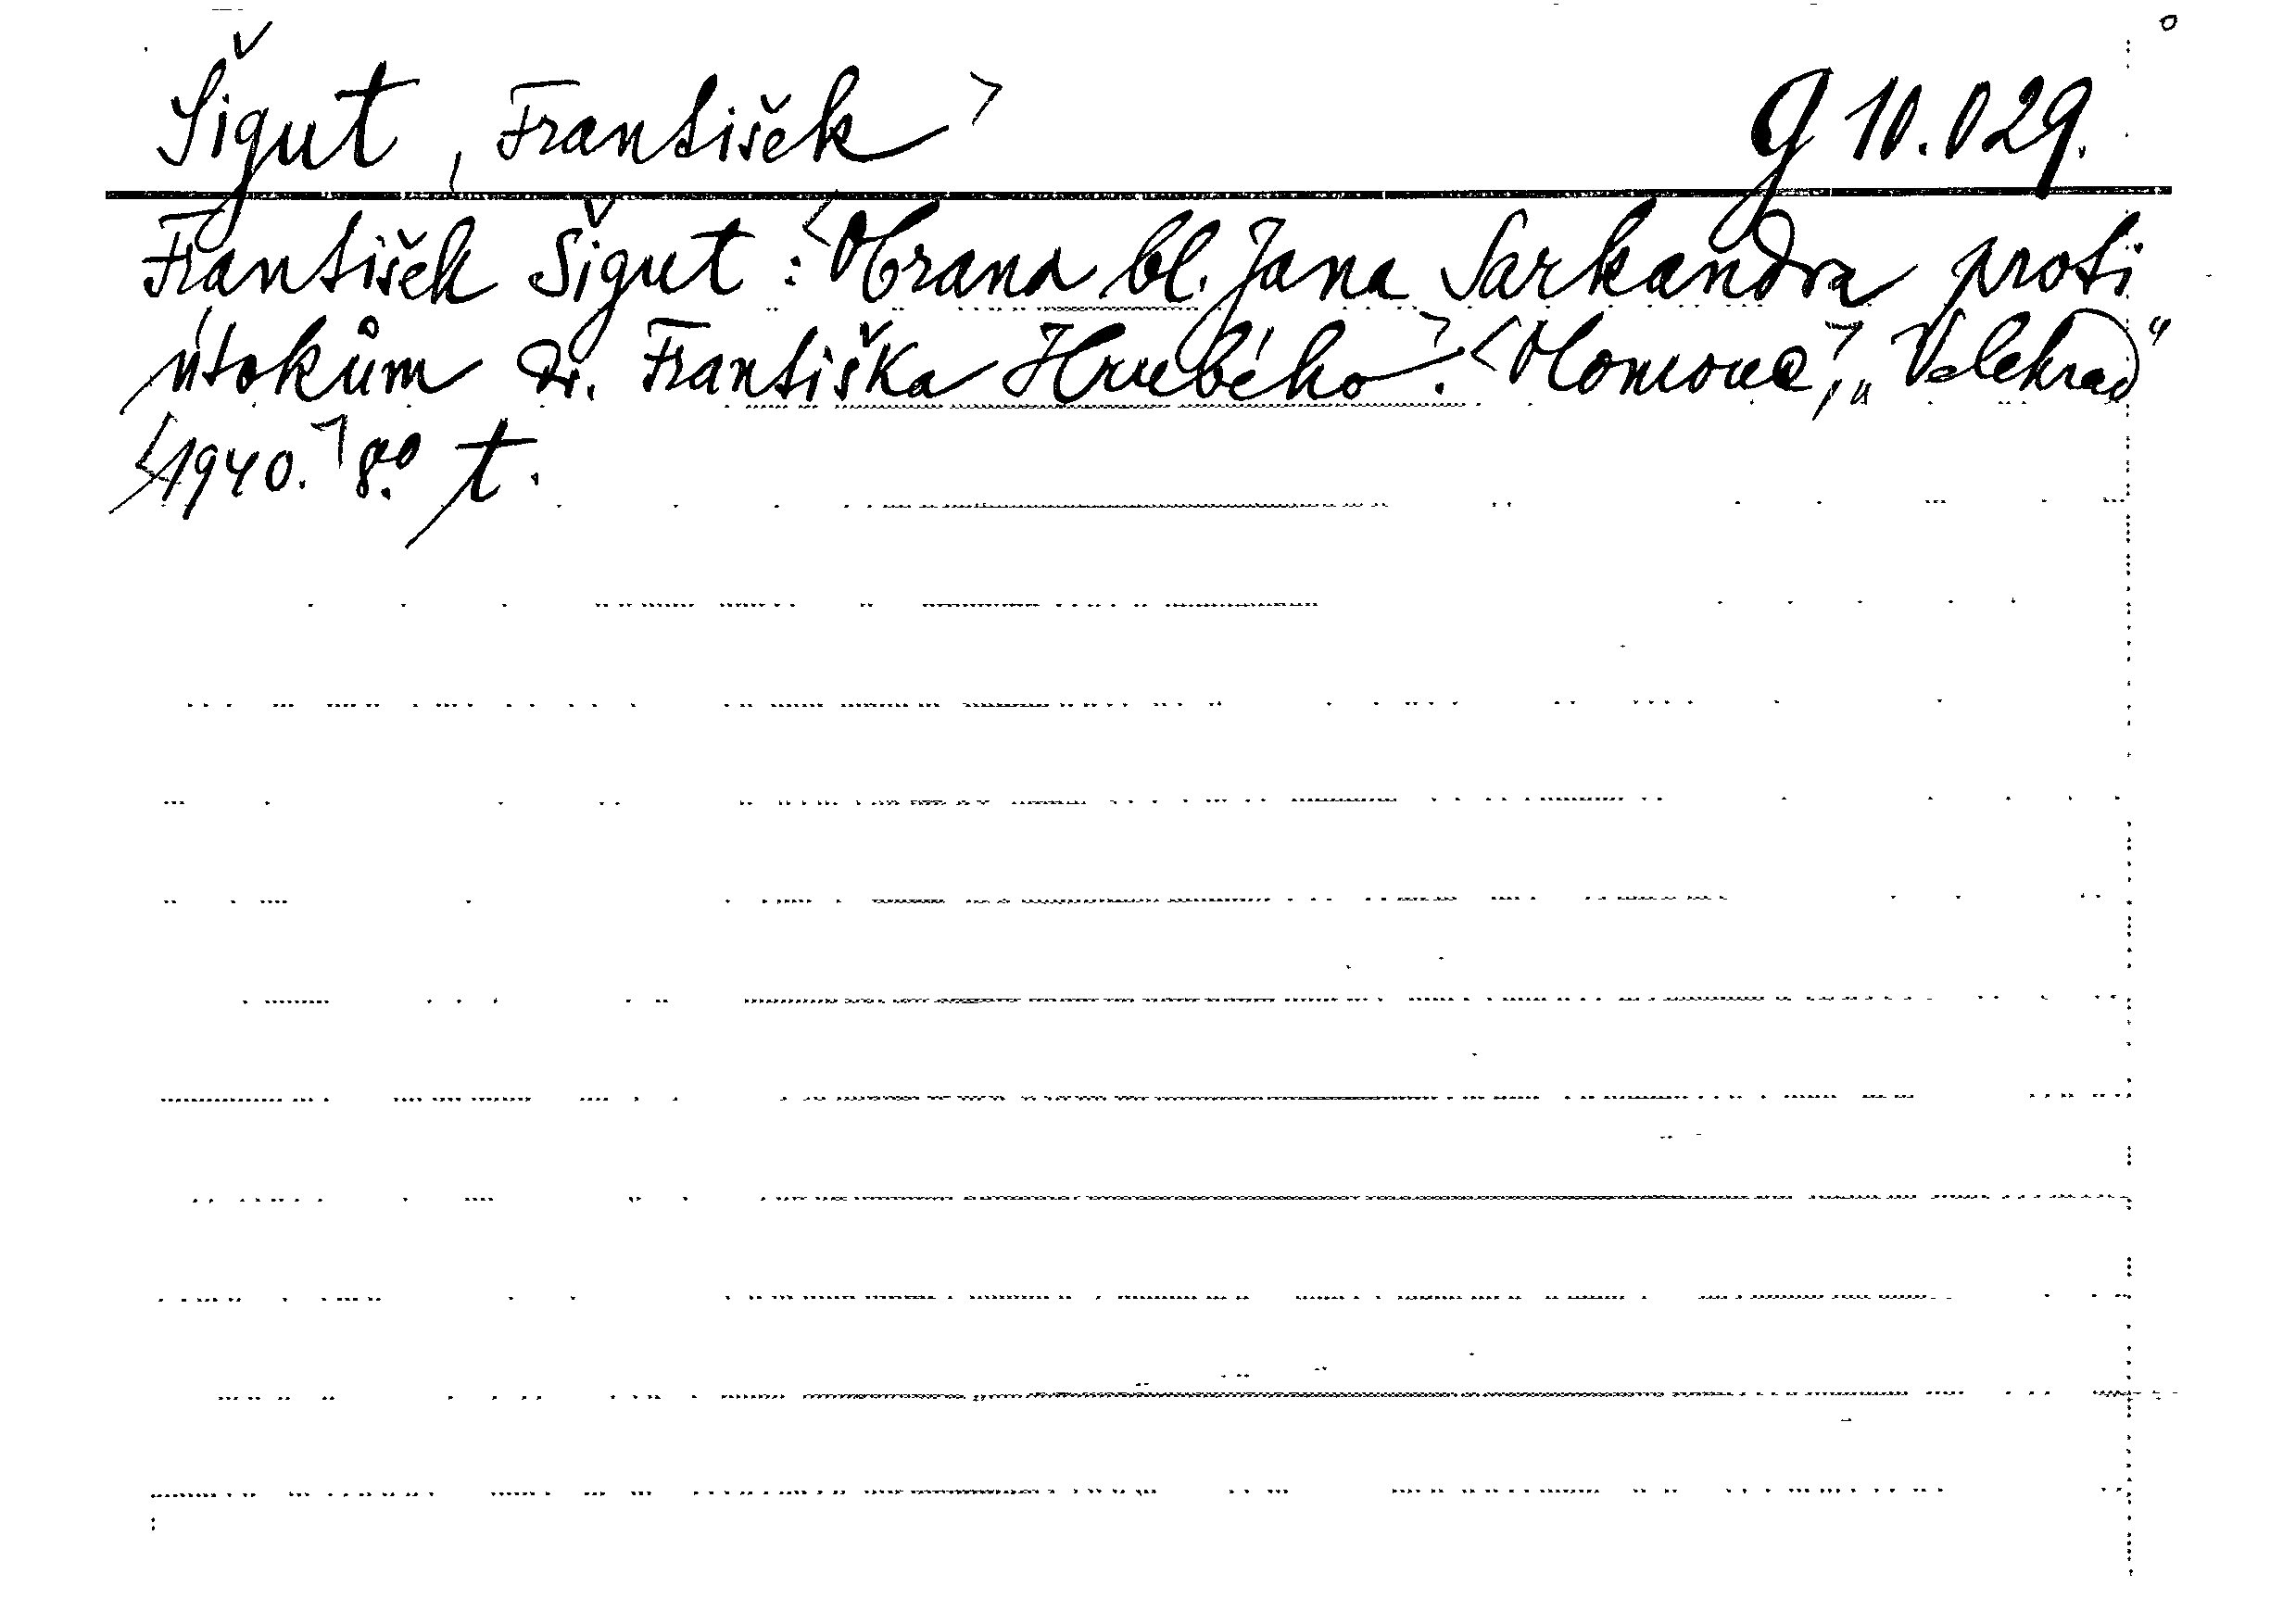 Šigut, František> g 10.029.
František Šigut: <Obrana bl. Jana Sarkandra proti
útokům Dr. Františka Hrubého>. <Olomouc>, „Velehrad“
<1940.> 8⁰. t.